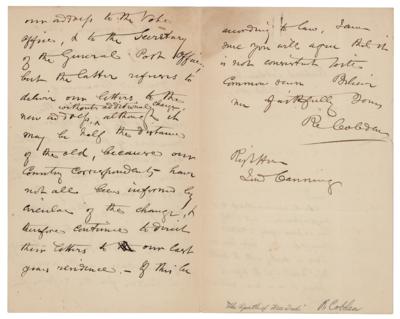 our address to the
Office, & to the Secretary
of the General Post Office,
but the latter refuses to
deliver our letters to the
without additional charge
new address, although it
may be half the distance
of the old, because our
Country Correspondents have
not all been informed by
circular of the change, &
therefore continue to direct
their letters to our last
years residence. — If this be
according to law, I am
sure you will agree that it
is not consistent with
Common sense Believe
me faithfully Yours
Rd Cobden
Right Hon
Lord Canning
"The Apostle of Free Trade"
R Cobden